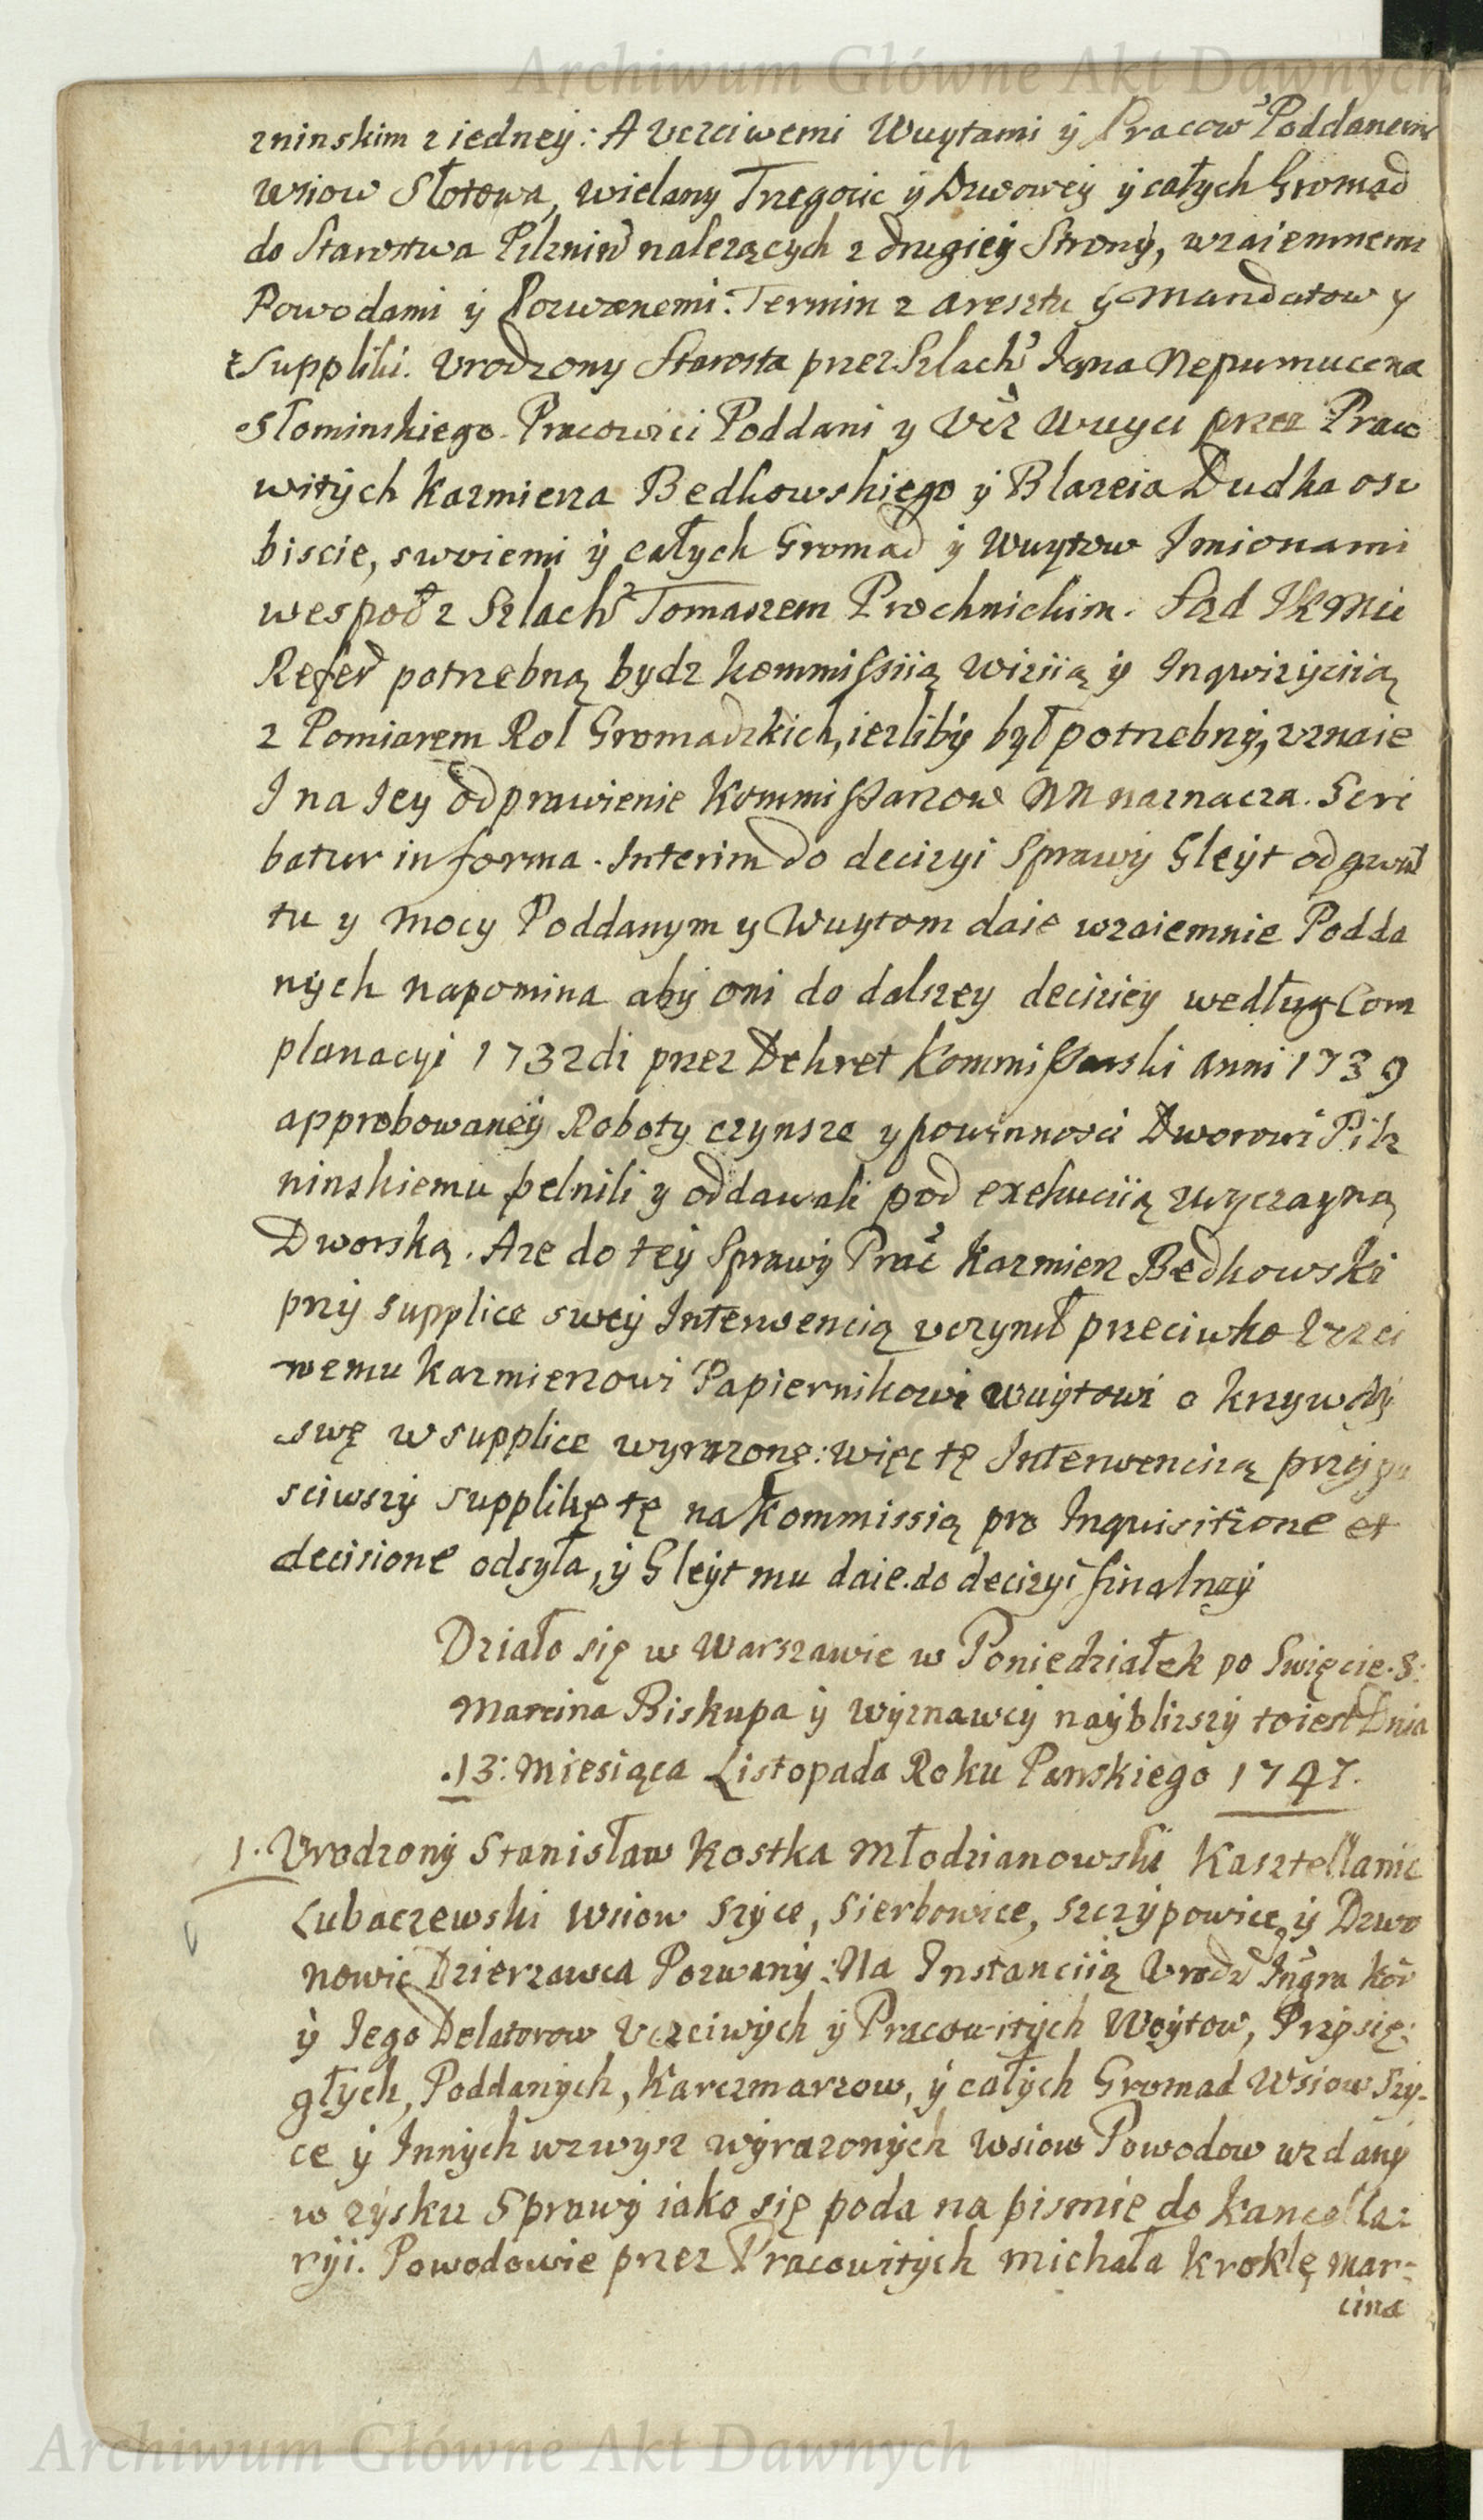 Archiwum Główne Akt Dawnych
zninskim z iedney: A Uczciwemi Wuytami ÿ Pracow Poddanemi
Wsiow Słotowa, Wielany Trzegocic ÿ Dwowey ÿ całych Gromad
do Starostwa Pilznin należących z drugiey Strony, wzaiemnemi
Powodami ÿ Pozwanemi. Termin z aresztu ÿ Mandatow y
z Suppliki. Urodzony Starosta przez Szlach Jana Nepumucena
Słominskiego. Pracowici Poddani y Ucz Wuyci przez Praco
witych Kazmierza Bedkowskiego ÿ Błazeia Dudka oso
biscie, swoiemi ÿ całych Gromad ÿ Wuytow Imionami
wespoł z Szlach Tomaszem Prochnickim. Sąd JKMci
Refer potrzebną bydz kommissiią wiziią ÿ Inqwizyciią
z Pomiarem Rol Gromadzkich, iezlibÿ był potrzebnÿ, uznaie
I na Iey odprawienie Kommissarzow NN naznacza. Scri
batur in forma. Interim do decizyi Sprawÿ Gleÿt od gwał
tu y mocy Poddanym y Wuytom daie wzaiemnie Podda
nÿch napomina abÿ oni do dalszey deciziey według Com
planacyi 1732di przez Dekret Kommissarski anni 1739
approbowaneÿ Roboty czynsze y powinnosci Dworowi Pilz
ninskiemu pełnili y oddawali pod exekuciią zwyczayną
Dworską. Aze do teÿ Sprawÿ Prac Kazmierz Bedkowski
przÿ supplice sweÿ Interwencią uczynił przeciwko Uczci
wemu Kazmierzowi Papiernikowi Wuÿtowi o krzywdÿ
swę w supplice wyrazonę: więc tę Interwenciią przypu
sciwszÿ supplikę tę na Kommissią pro Inquisitione et
decisione odsyła, ÿ Gleÿt mu daie do decizyi finalneÿ
Działo się w Warszawie w Poniedziałek po Swięcie S:
Marcina Biskupa ÿ Wÿznawcÿ naÿblizszÿ toiest Dnia
.13: Miesiąca Listopada Roku Panskiego 1747.
1. Urodzonÿ Stanisław Kostka Młodzianowski Kasztellanic
Lubaczewski Wsiow Szÿce, Sierbowice, Szczÿpowice, ÿ Dzwo
nowic Dzierzawca Pozwanÿ: Na Instanciią Urodz Ingra Kor
ÿ Iego Delatorow Uczciwÿch ÿ Pracowitÿch Woÿtow, Przÿsię:
głÿch, Poddanÿch, Karczmarzow, ÿ całÿch Gromad Wsiow Szÿ-
ce ÿ Innÿch wzwysz wÿrazonÿch Wsiow Powodow wzdanÿ
w zÿsku Sprawÿ iako się poda na pismie do Kancella:
rÿi. Powodowie przez Pracowitÿch Michała Kroklę Mar:
cina
Archiwum Główne Akt Dawnych